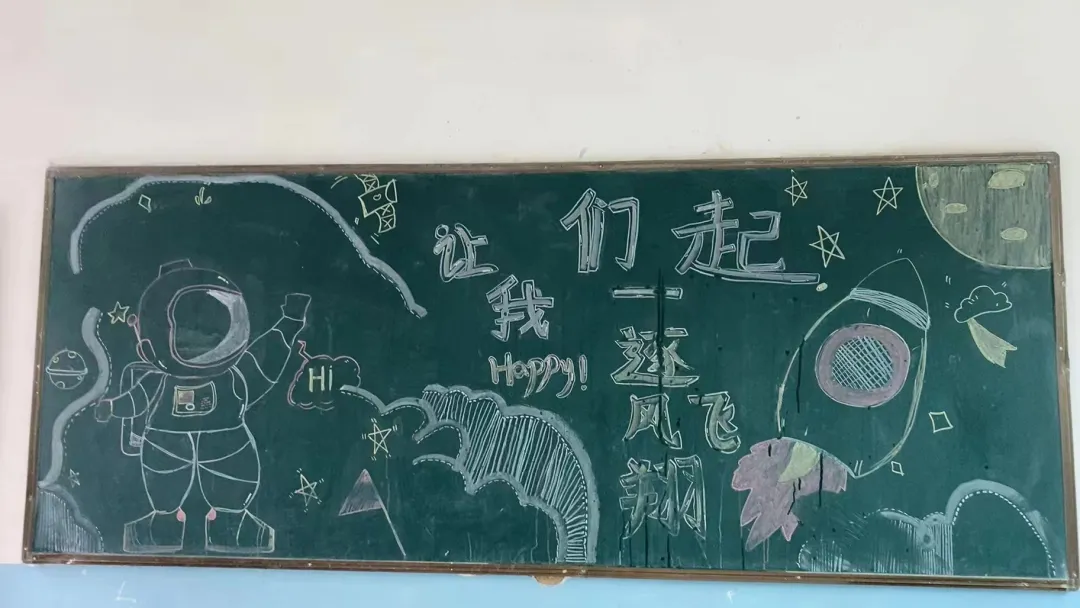 让我们一起
逐风飞翔
Happy!
Hi